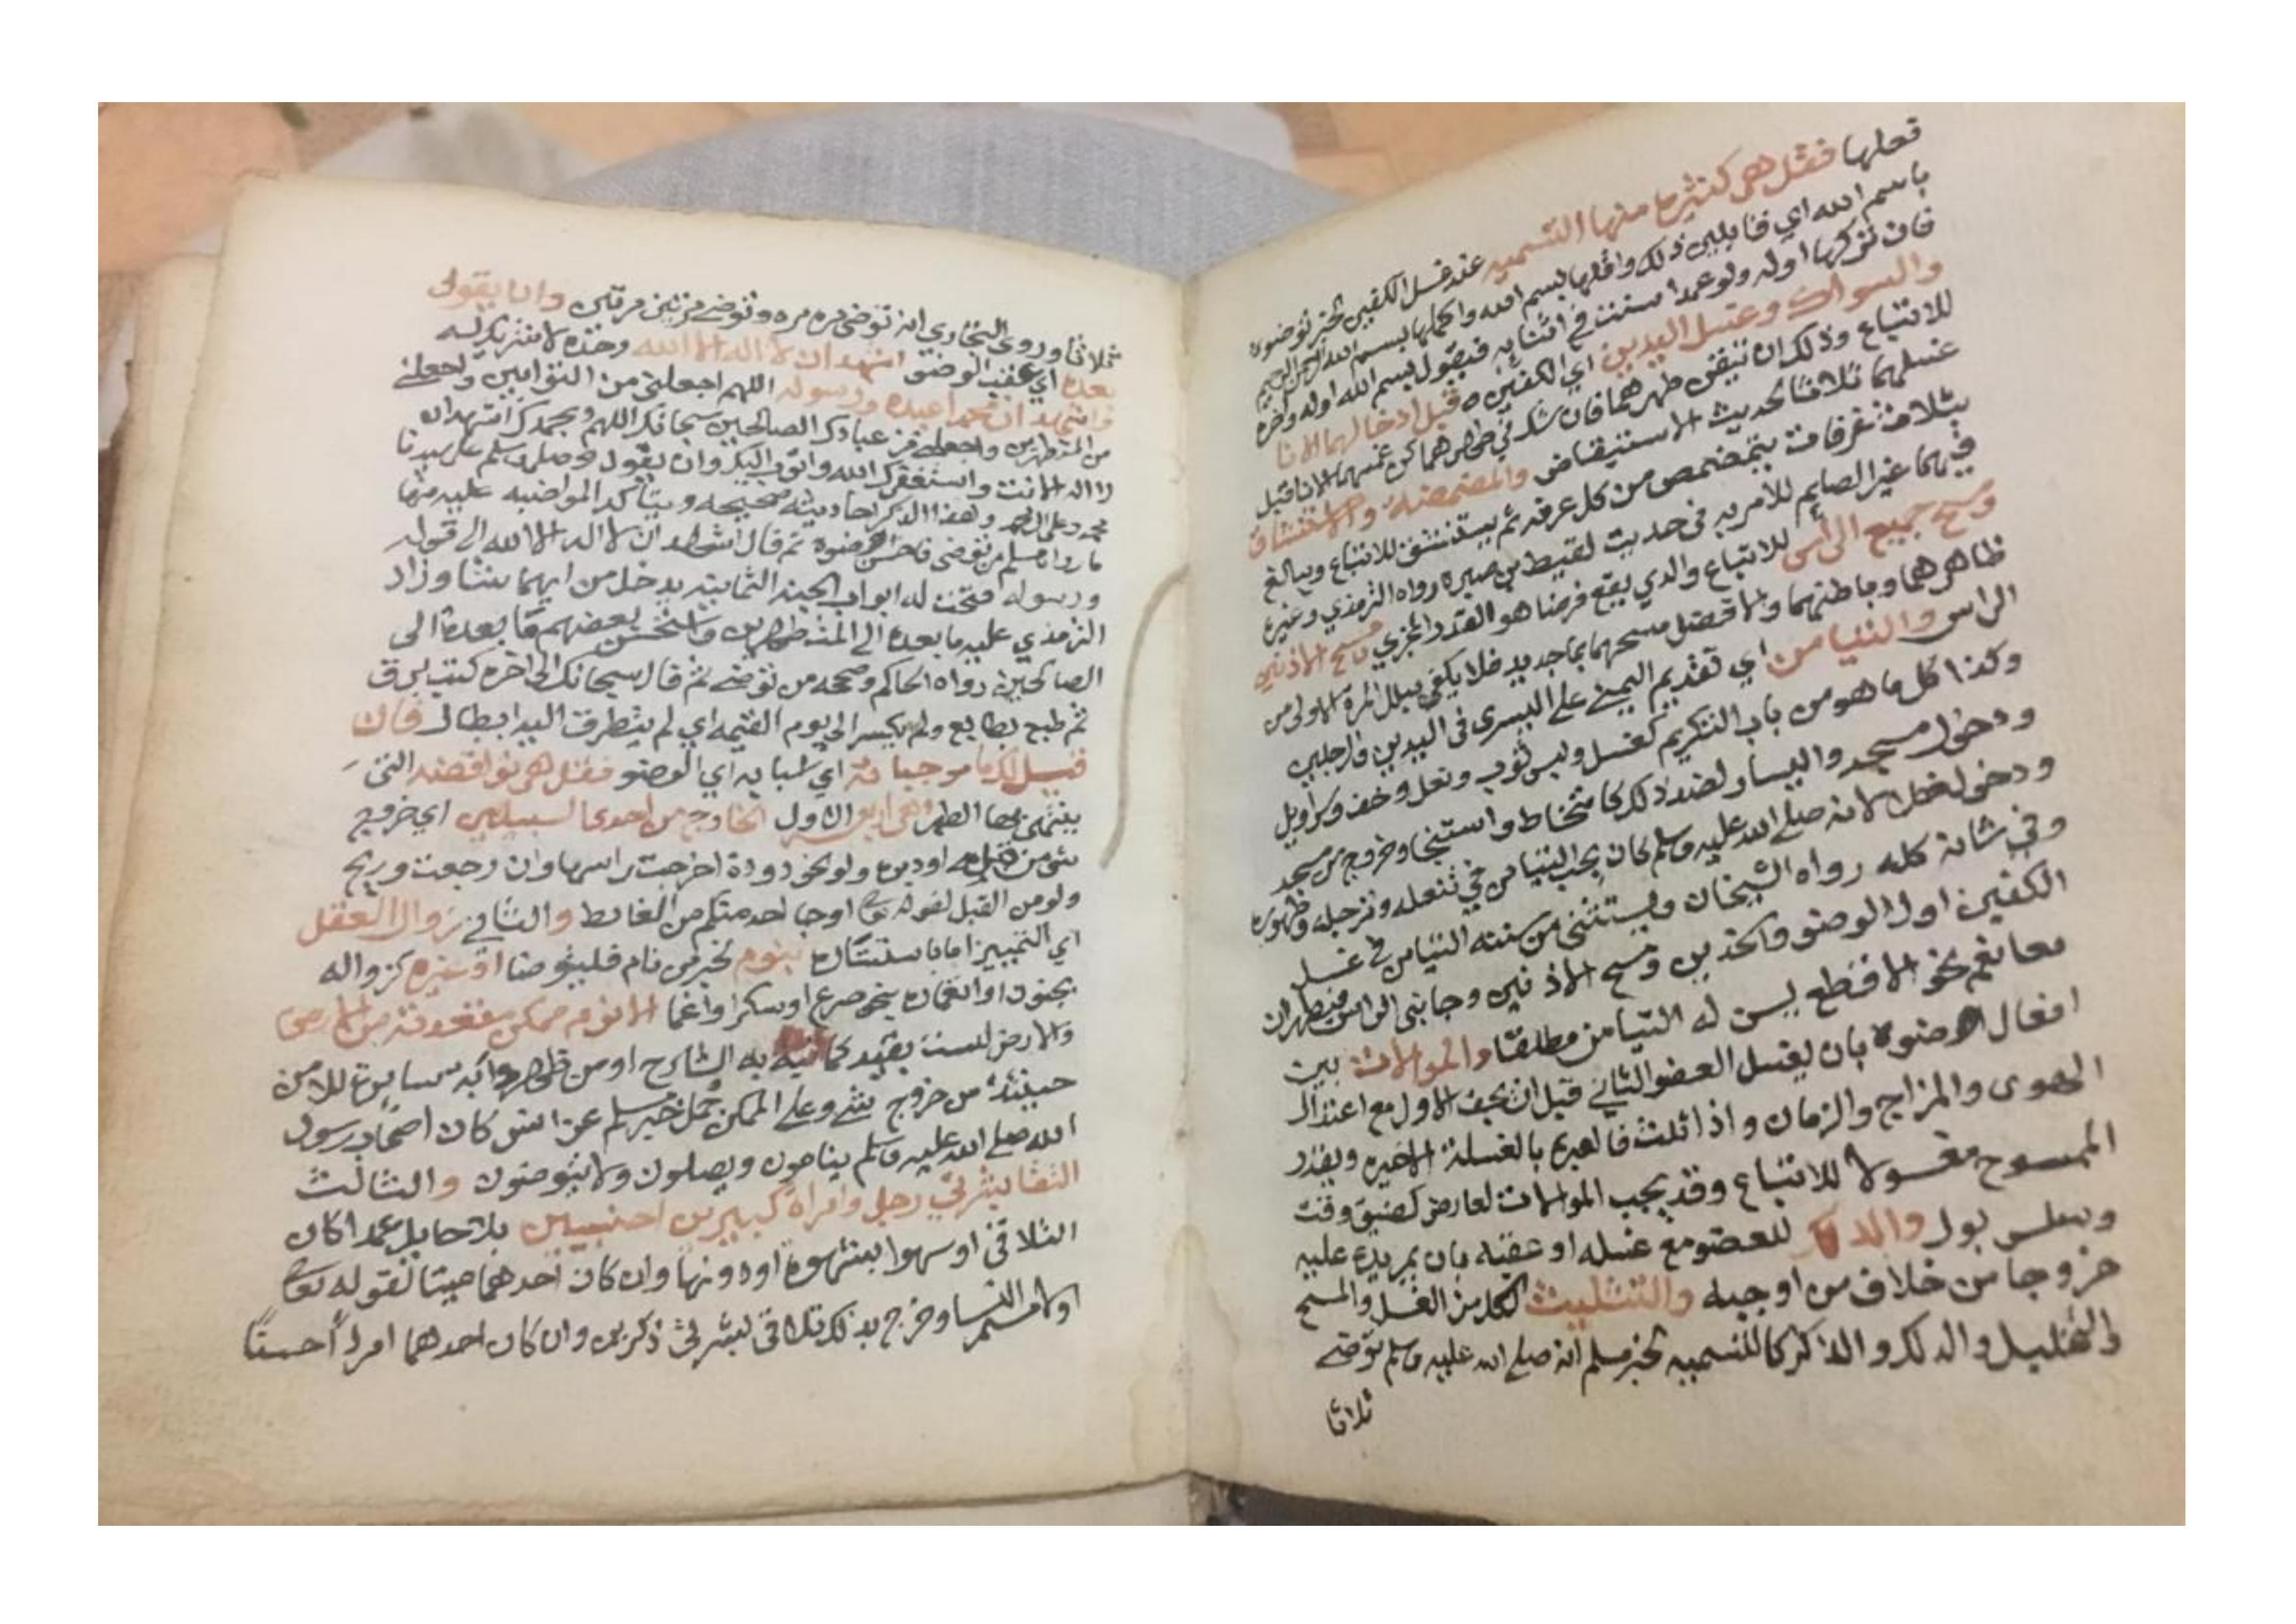 فعلها فقل هي كثيرة منها التسمية عند غسل الكفين لخبر توضوه
باسم الله اي قايلين ذلك واقلها بسم الله واكملها بسم الله الرحمن الرحيم
فان تركها اوله ولو عمدا سنت في اثنايه فيقول بسم الله اوله واخره
والسواك وغسل اليدين اي الكفين قبل ادخالهما الانا
للاتباع وذلك ان تيقن طهرهما فان شك في طهرهما كره غمسهما الانا قبل
غسلهما ثلاثا لحديث الاستيقاض والمضمضة والاستنشاق
بثلاث غرفات يتمضمض من كل غرفه ثم يستنشق للاتباع ويبالغ
فيهما غير الصايم للامر به في حديث لقيط بن صبره رواه الترمذي وغيره
ومسح جميع الراس للاتباع والذي يقع فرضا هو القدر المجزي ومسح الاذنين
ظاهرهما وباطنهما والافضل مسحهما بماجديد فلا يكفي ببلل المرة الاولى من
الراس والتيامن اي تقديم اليمنى على اليسرى في اليدين والرجلين
وكذا كل ما هو من باب التكريم كغسل ولبس ثوب ونعل وخف وسراويل
ودخول مسجد واليسار لضد ذلك كامتخاط واستنجا وخروج من مسجد
ودخول لخلا لانه صلى الله عليه وسلم كان يحب التيامن في تنعله وترجله وطهوره
وفي شانه كله رواه الشيخان ويستثنى من سنته التيامن في غسل
الكفين اول الوضو والخدين ومسح الاذنين وجانبي الراس فيطهران
معا نعم نحو الاقطع يسن له التيامن مطلقا والموالات بين
افعال الوضوة بان يغسل العضو الثاني قبل ان يجف الاول مع اعتدال
الهوى والمزاج والزمان واذا ثلث فالعبرة بالغسلة الاخيره ويقدر
الممسوح مغسولا للاتباع وقد يجب الموالات لعارض كضيق وقت
وسلس بول والدلك للعضو مع غسله او عقبه بان يمر يده عليه
خروجا من خلاف من اوجبه والتثليث لكل من الغسل والمسح
والتخليل والدلك والذكر كالتسميه لخبر مسلم انه صلى الله عليه وسلم توضى
ثلاثا
ثلاثا وروى البخاري انه توضى مره مره وتوضى مرتين مرتين وان يقول
بعده اي عقب الوضو اشهد ان لا اله الا الله وحده لا شريك له
واشهد ان محمدا عبده ورسوله اللهم اجعلني من التوابين واجعلني
من المتطهرين واجعلني من عبادك الصالحين سبحانك اللهم وبحمدك اشهد ان
لا اله الا انت واستغفرك الله واتوب اليك وان يقول وصلى وسلم على سيدنا
محمد وعلى ال محمد وهذا الذكر احاديثه صحيحه ويتاكد المواضبه عليه منها
ما رواه مسلم من توضى فاحسن الوضوة ثم قال اشهد ان لا اله الا الله الى قوله
ورسوله فتحت له ابواب الجنة الثمانيه يدخل من ايهما شا وزاد
الترمذي عليه ما بعده الى المتطهرين واستحسن بعضهم ما بعدة الى
الصالحين رواه الحاكم وصححه من توضى ثم قال سبحانك الى اخره كتب برق
ثم طبع بطابع ولم يكسر الى يوم القيمه اي لم يتطرق اليه ابطال فان
قيل لك ما موجباته اي اسبابه اي الوضو فقل هي نواقضه التي
ينتهي بها الطهر وهي اربع الاول الخارج من احدى السبيلين اي خروج
شي من قبله او دبره ولو نحو دودة اخرجت راسها وان رجعت وريح
ولو من القبل لقوله تعالى اوجا احد منكم من الغائط والثاني زوال العقل
اي التمييز اما باستتاره بنوم لخبر من نام فليتوضا او غيره كزواله
بجنون او انغماره بنحو صرع او سكر او اغما الا نوم ممكن مقعدته من الارض
والارض ليست بقيد كما نبه به الشارح او من ظهر دابه سايره للامن
حينئذ من خروج شي وعلى الممكن حمل خبر مسلم عن انس كان اصحاب رسول
الله صلى الله عليه وسلم ينامون ويصلون ولا يتوضون والثالث
التقا بشرتي رجل وامراة كبيرين اجنبيين بلا حايل عمدا كان
التلاقي او سهوا بشهوة او دونها وان كان احدهما ميتا لقوله تعالى
اولامستم النسا وخرج بذلك تلاقي بشرتي ذكرين وان كان احدهما امردا حسنا